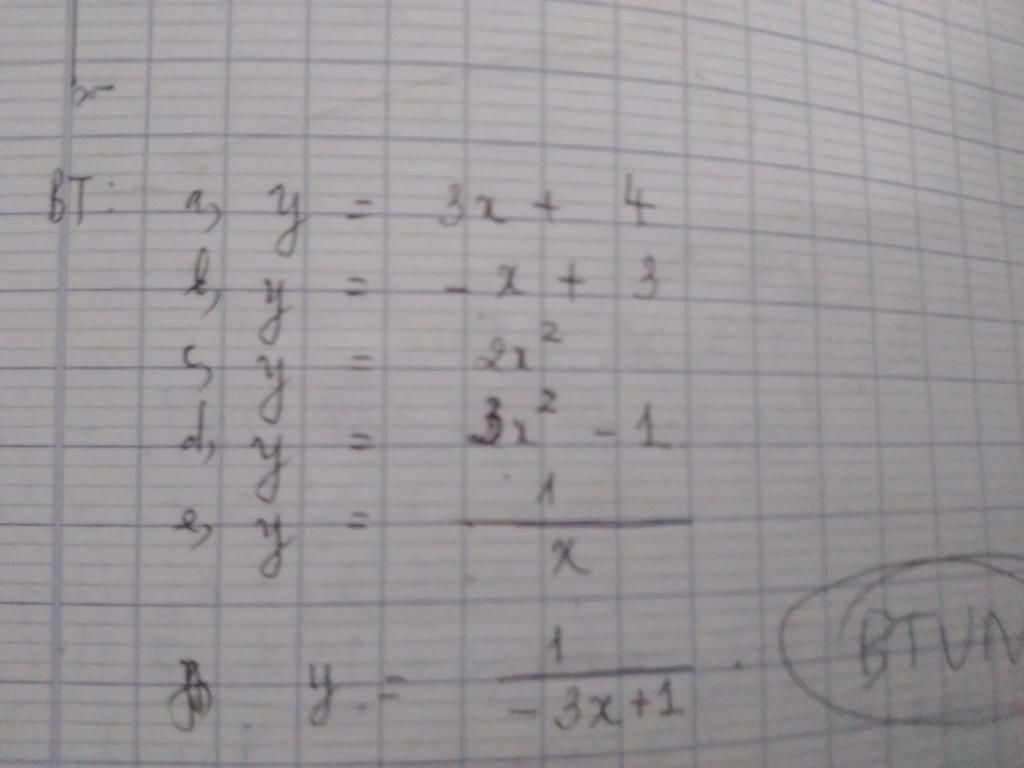 BT: a, y = 3x + 4
b, y = - x + 3
c, y = 2x²
d, y = 3x² - 1
e, y = 1/x
y = 1/(-3x+1)
BTVN